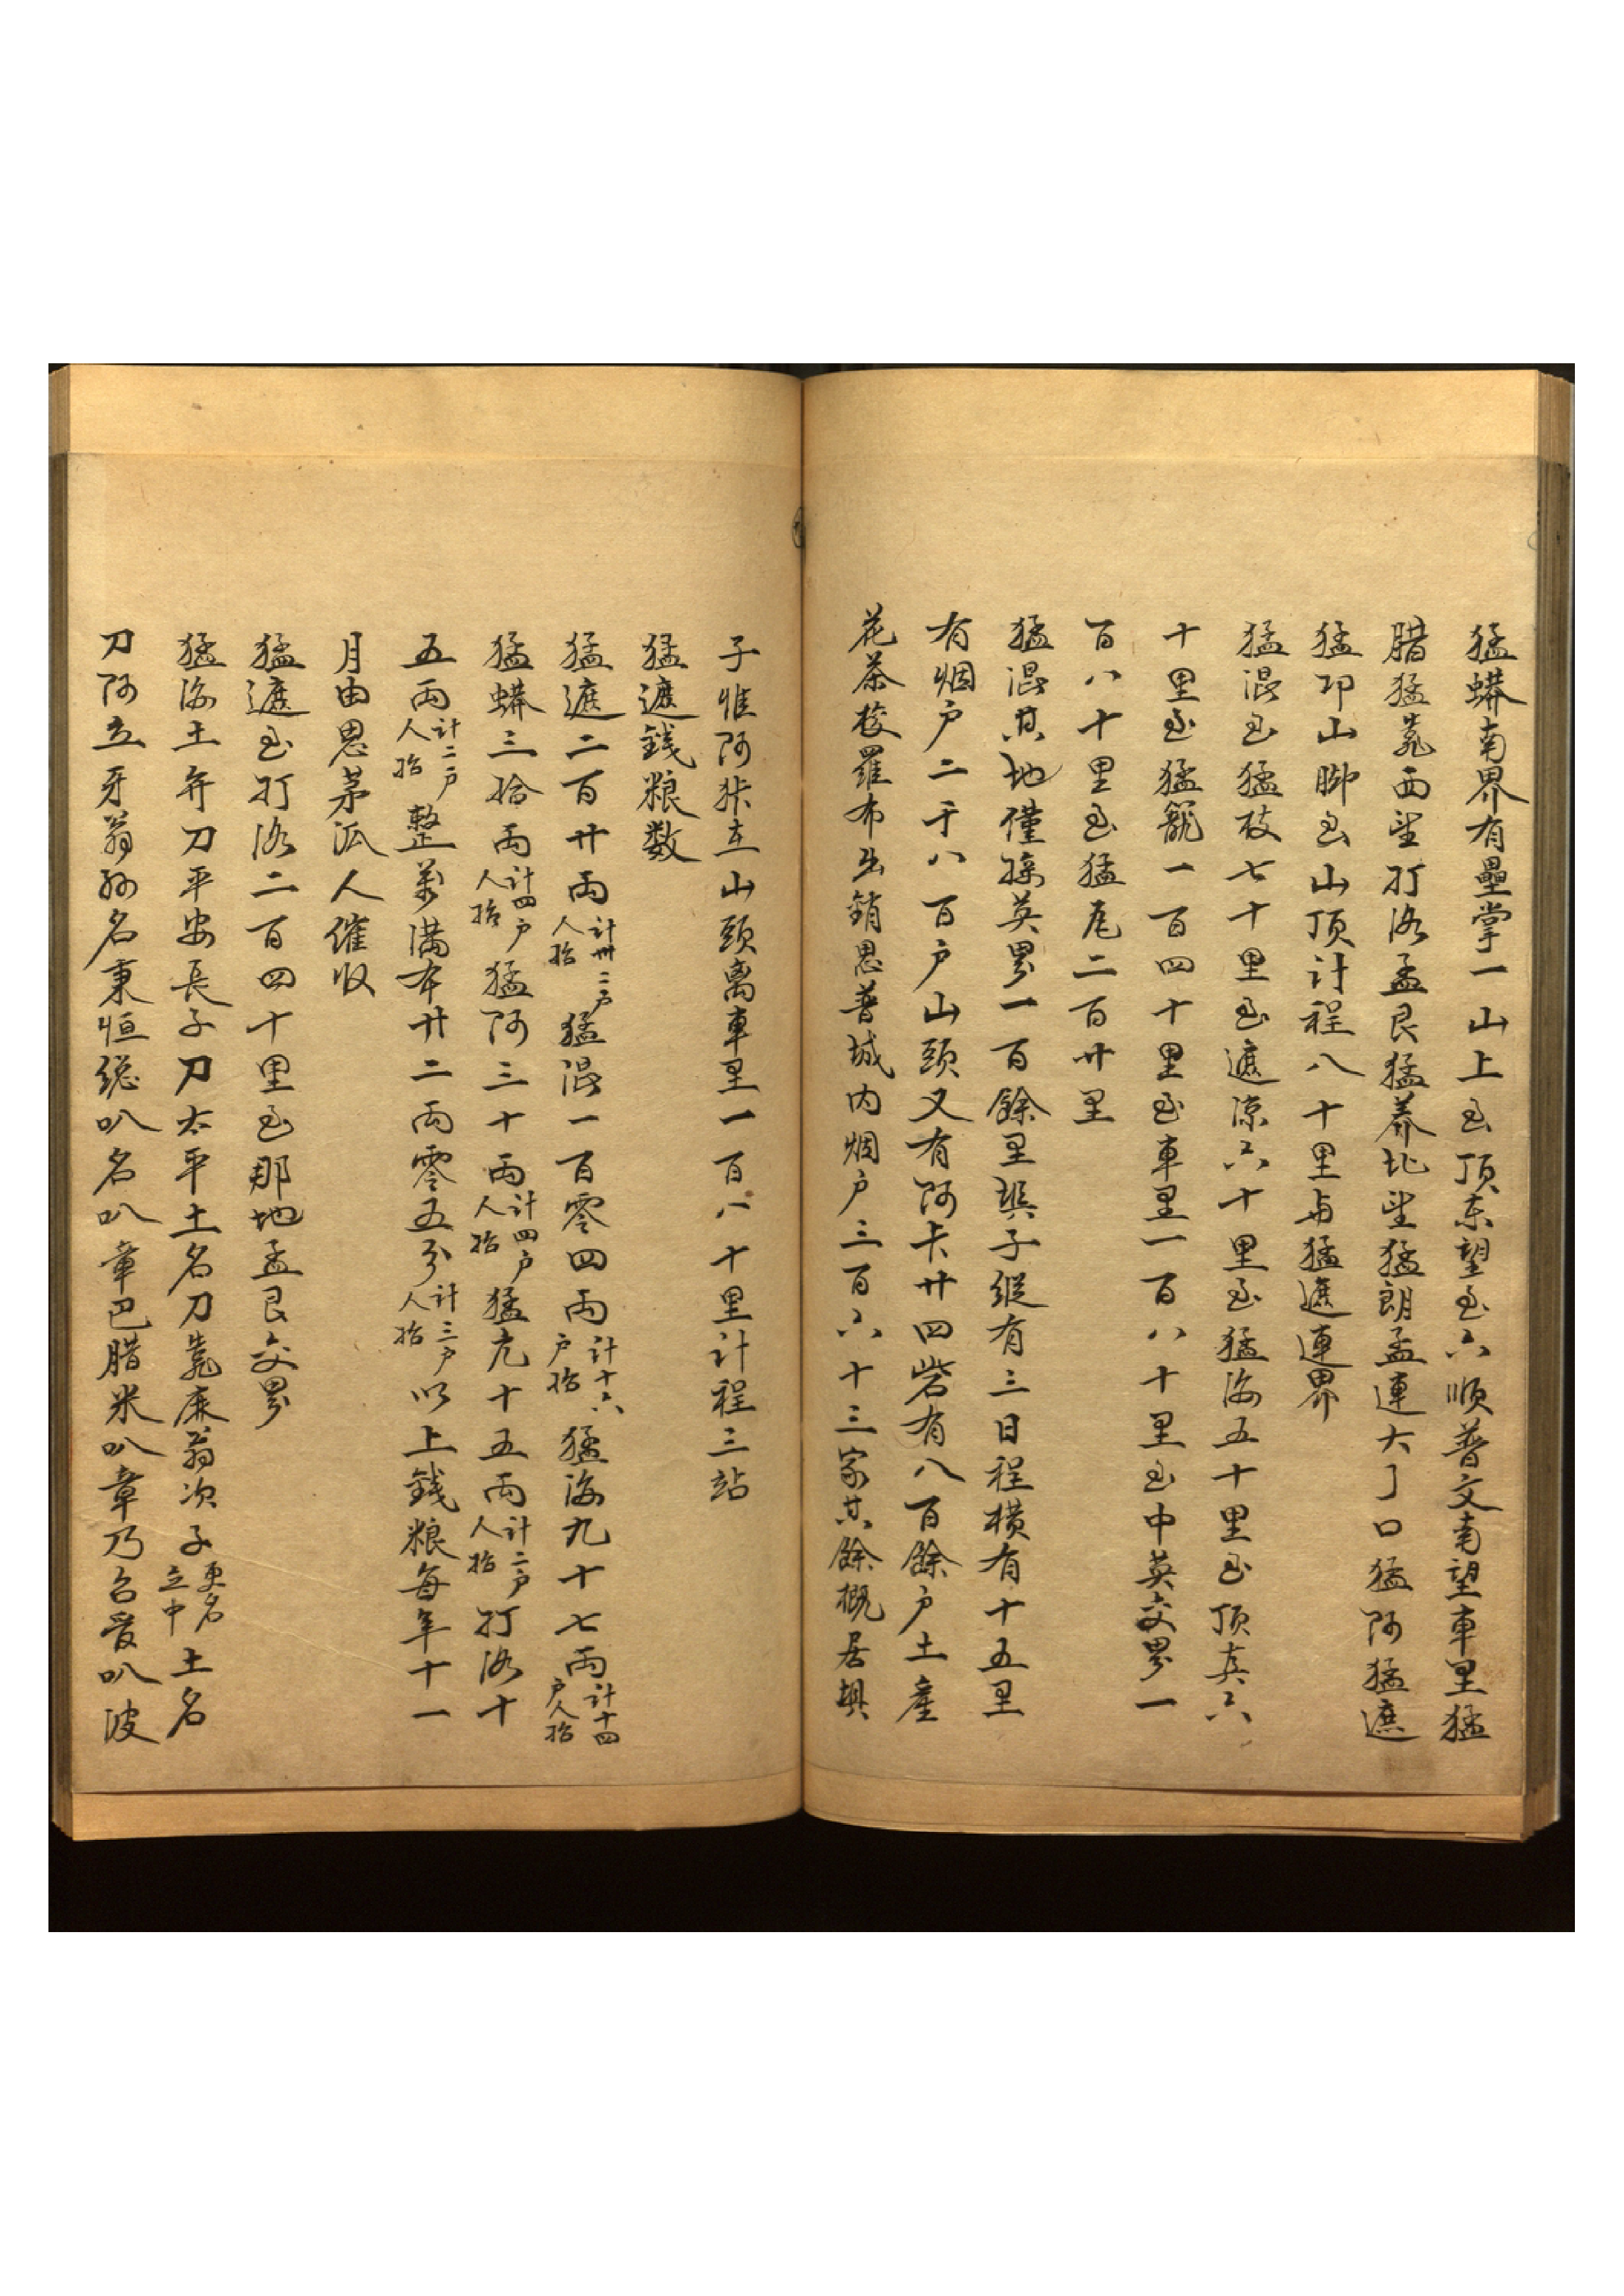 猛蟒南界有壘掌一山上至頂東望至六順普文南望車里猛
腊猛竜西望打洛孟艮猛养北望猛朗孟連大丫口猛阿猛遮
猛卬山脚至山頂計程八十里与猛遮連界
猛混至猛板七十里至遮凉六十里至猛海五十里至頂真六
十里至猛籠一百四十里至車里一百八十里至中英交界一
百八十里至猛尾二百廿里
猛混其地僅接英界一百餘里垻子縱有三日程横有十五里
有烟户二千八百户山頭又有阿卡廿四砦有八百餘户土産
花茶梭羅布出銷思普城内烟户三百六十三家其餘概居垻
子惟阿卡在山頭离車里一百八十里計程三站
猛遮銭粮数
猛遮二百廿兩計卅二户人抬猛混一百零四兩計十六户抬猛海九十七兩計十四户人抬
猛蟒三拾兩計四户人抬猛阿三十兩計四户人抬猛亢十五兩計二户人抬打洛十
五兩計二户人抬整萬滿本廿二兩零五分計三户人抬以上銭粮每年十一
月由思茅派人催收
猛遮至打洛二百四十里至那地孟艮交界
猛海土弁刀平安長子刀太平土名刀竜庥翁次子更名立中土名
刀阿立牙翁孙名秉恒総叭名叭章巴腊米叭章乃召爱叭波